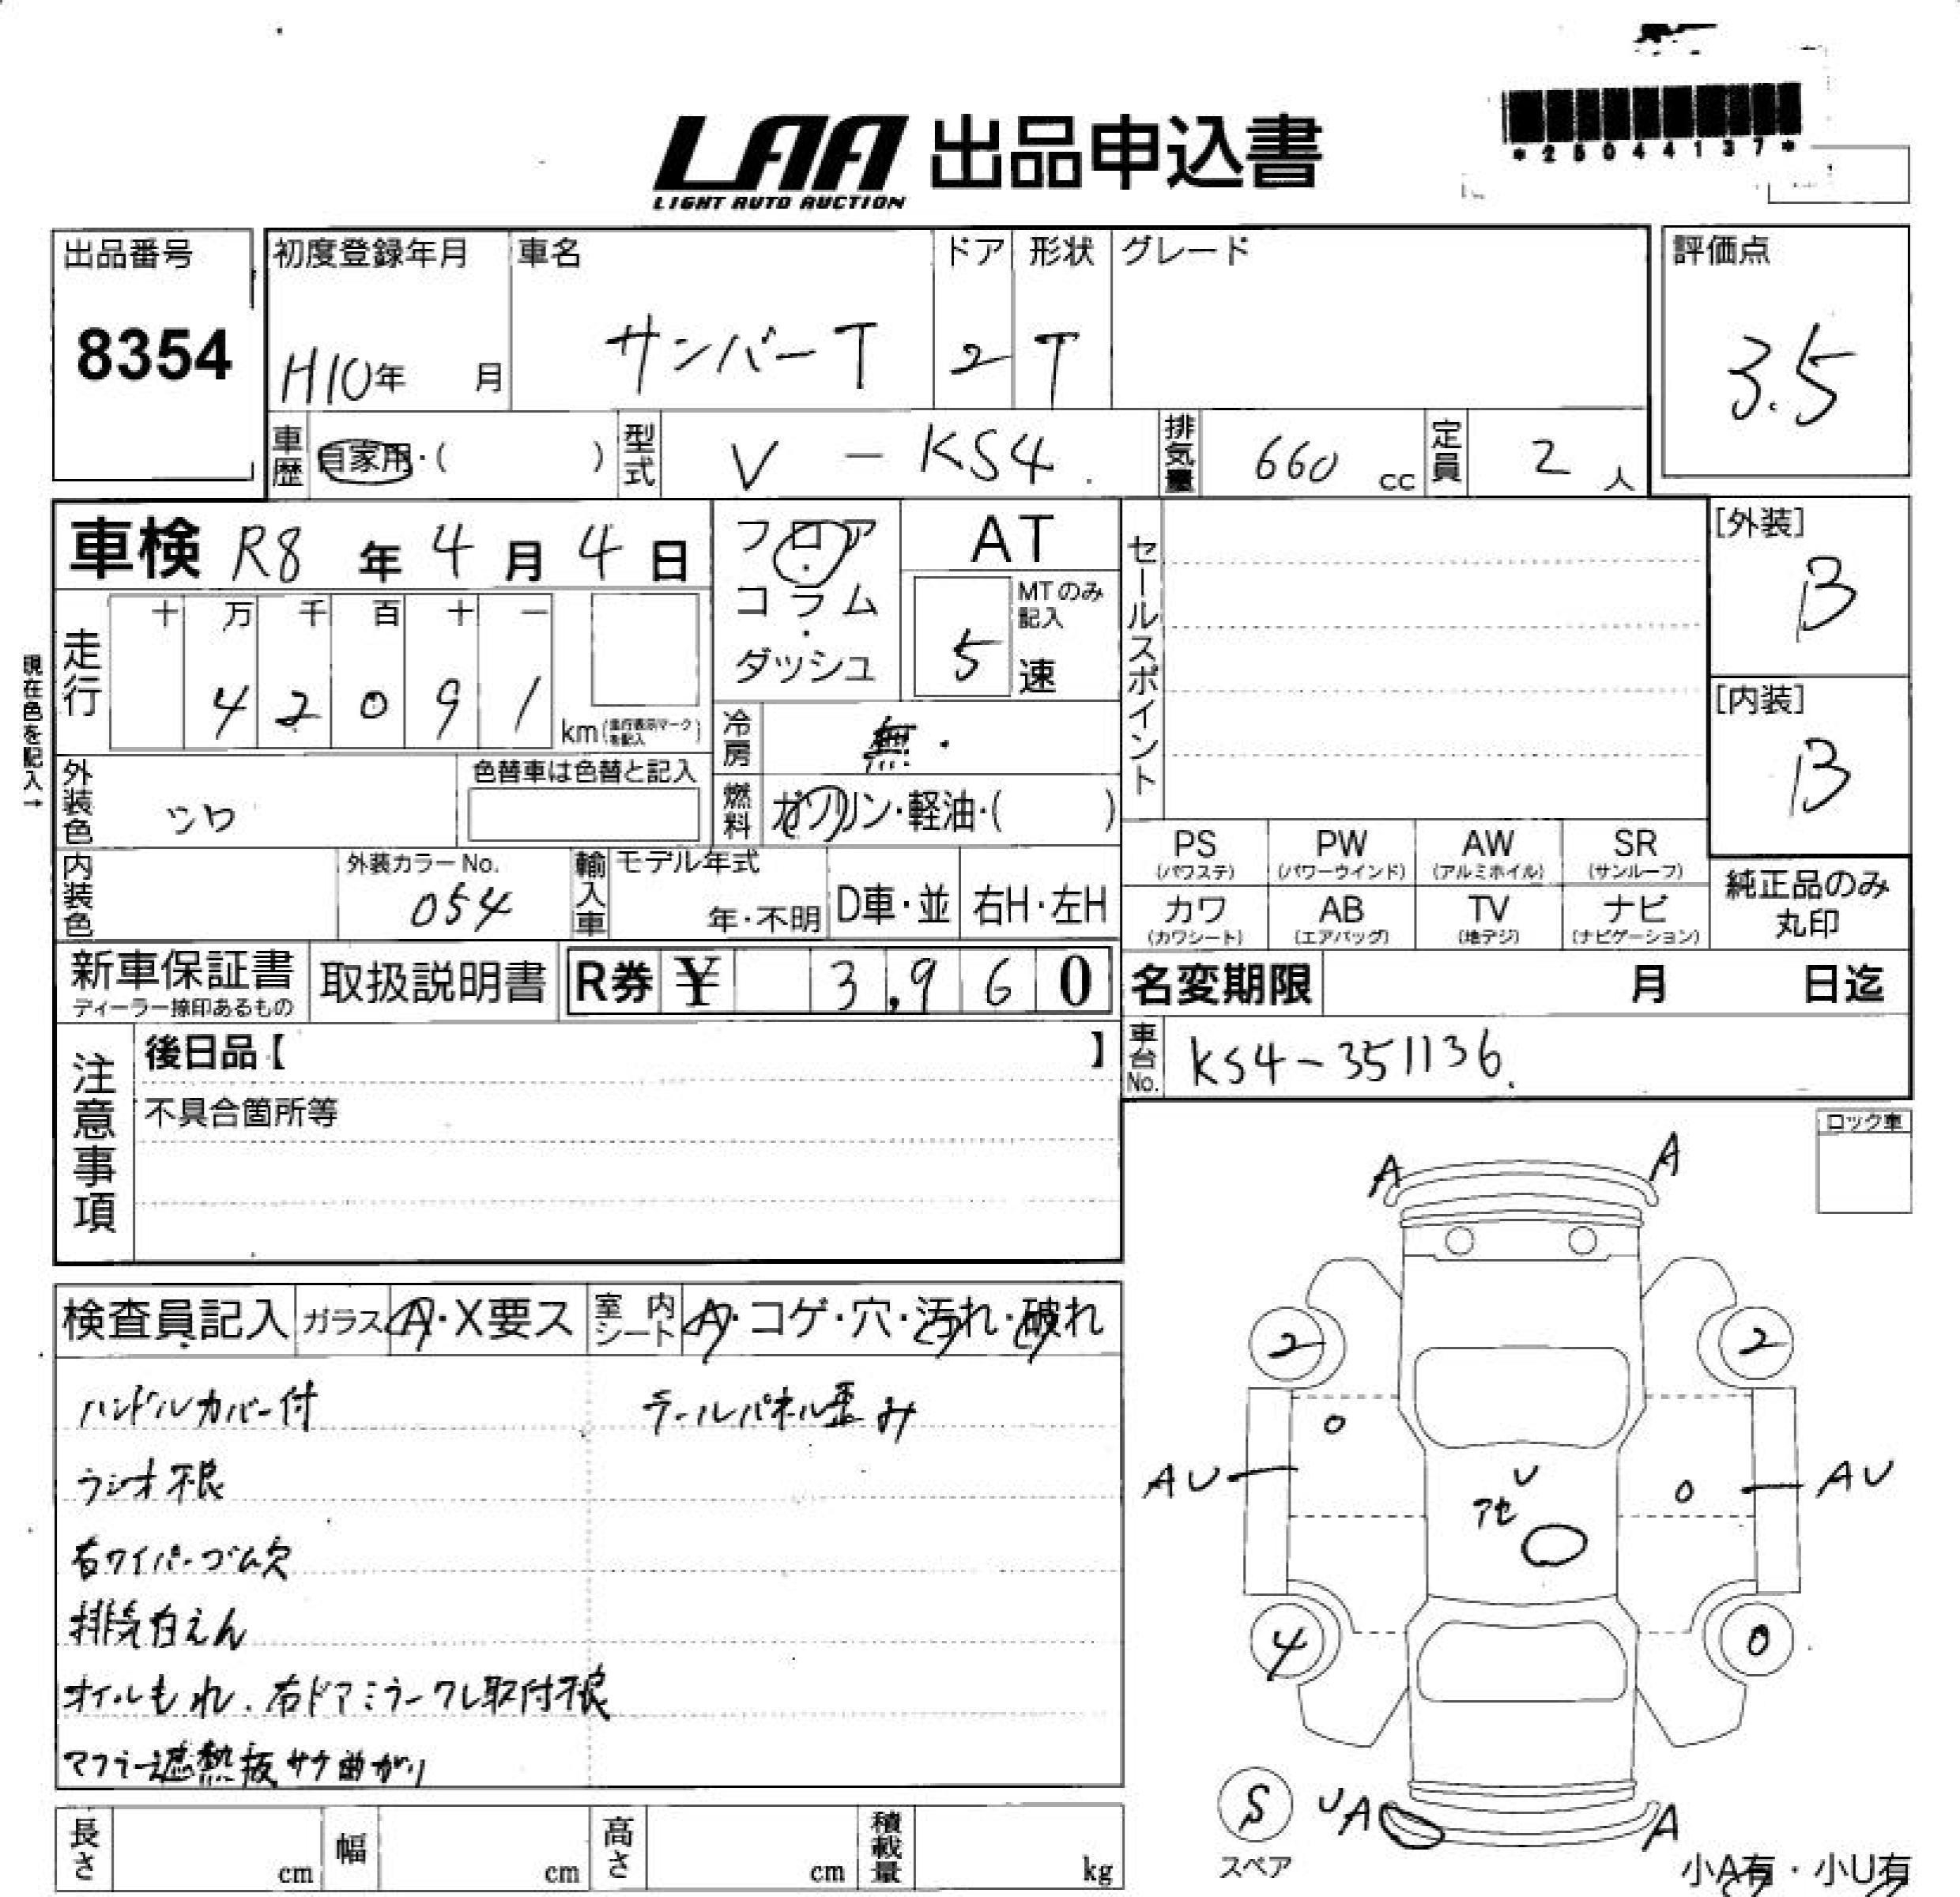 *25044137*
LAA 出品申込書
LIGHT AUTO AUCTION
出品番号
8354
初度登録年月
H10年 月
車名
サンバーT
ドア
2
形状
T
グレード
評価点
3.5
車歴 自家用・( )
型式 V - KS4
排気量 660 cc
定員 2 人
車検 R8 年 4 月 4 日
フロア
・
コラム
・
ダッシュ
AT
MTのみ記入
5 速
セールスポイント
[外装]
B
[内装]
B
現在色を記入→
走行
十 万 千 百 十 一
4 2 0 9 1
km(走行表示マークを記入)
冷房 無・
燃料 ガソリン・軽油・( )
外装色 シロ
色替車は色替と記入
内装色
外装カラーNo.
054
輸入車
モデル年式
年・不明
D車・並
右H・左H
PS PW AW SR
(パワステ) (パワーウインド) (アルミホイル) (サンルーフ)
カワ AB TV ナビ
(カワシート) (エアバッグ) (地デジ) (ナビゲーション)
純正品のみ
丸印
新車保証書
ディーラー捺印あるもの
取扱説明書
R券 ¥ 3,960
名変期限 月 日迄
車台No. KS4-351136
注意事項
後日品【 】
不具合箇所等
ロック車
検査員記入
ガラス A・X要ス
室内シート A・コゲ・穴・汚れ・破れ
ハンドルカバー付
テールパネル歪み
ラジオ不良
右ワイパーゴム欠
排気白えん
オイルもれ. 右ドアミラーワレ取付不良
マフラー遮熱板サケ曲がり
A A
2 2
AU AU
U
アセ
4 0
S UA A
スペア
小A有・小U有
長さ cm
幅 cm
高さ cm
積載量 kg